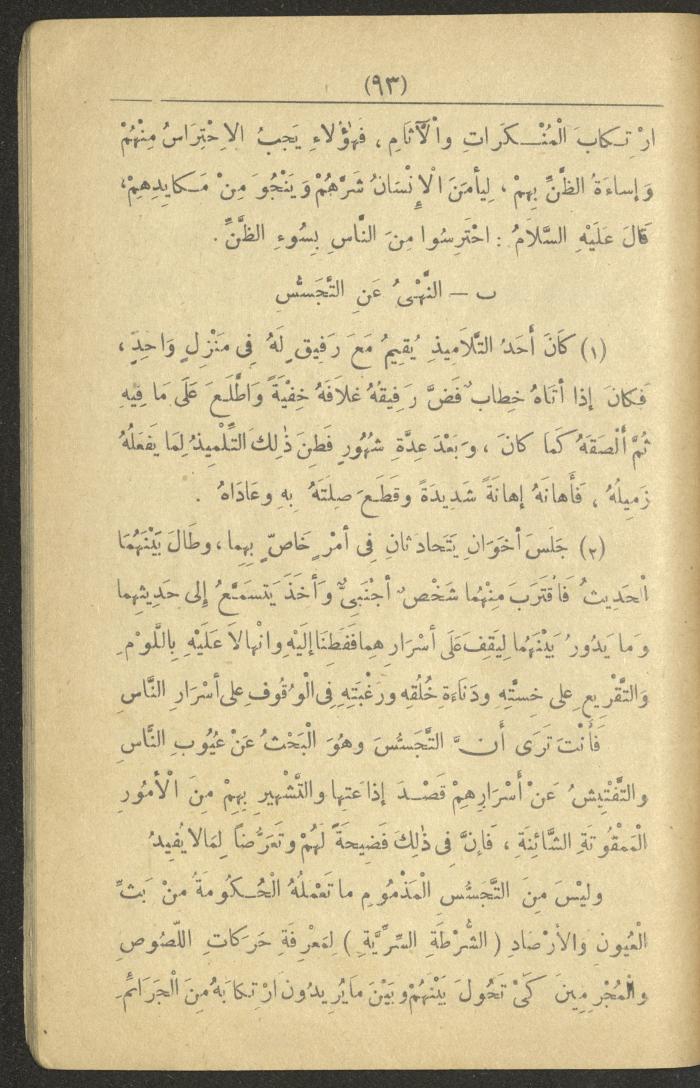 (٩٣)
ارْتِكابَ الْمُنْكَرَاتِ والْآثَامِ ، فَهٰؤُلاءِ يَجِبُ الاحْتِرَاسُ مِنْهُمْ
وَإساءَةُ الظَّنِّ بِهِمْ ، لِيأمَنَ الْإِنْسَانُ شَرَّهُمْ وَيَنْجُوَ مِنْ مَكايِدِهِمْ ،
قَالَ عَلَيْهِ السَّلَامُ : احْتَرِسُوا مِنَ النَّاسِ بِسُوءِ الظَّنِّ .
ب — النَّهْىُ عَنِ التَّجَسُّسِ
(١) كَانَ أَحَدُ التَّلَامِيذِ يُقِيمُ مَعَ رَفِيقٍ لَهُ فِى مَنْزِلٍ وَاحِدٍ ،
فَكانَ إذَا أتَاهُ خِطابٌ فَضَّ رَفِيقُهُ غلَافَهُ خِفْيَةً وَاطَّلَعَ عَلَى مَا فِيهِ
ثُمَّ ألْصَقَهُ كَمَا كانَ ، وَبَعْدَ عِدَّةِ شُهُورٍ فَطِنَ ذٰلِكَ التِّلْمِيذُ لِمَا يَفْعَلُهُ
زَمِيلُهُ ، فَأَهانَهُ إهانَةً شَدِيدَةً وقَطَعَ صِلَتَهُ بِهِ وعَادَاهُ .
(٢) جَلَسَ أَخَوَانِ يَتَحَادَثانِ فِى أمْرٍ خَاصٍّ بِهِما ، وطَالَ بَيْنَهُمَا
الْحَدِيثُ فَاقْتَرَبَ مِنْهُما شَخْصٌ أجْنَبِىٌّ وَأَخَذَ يَتَسَمَّعُ إلى حَدِيثِهِما
وَما يَدُورُ بَيْنَهُما لِيَقِفَ عَلَى أسْرَارِهِما فَفَطِنَا إلَيْهِ وانْهالَا عَلَيْهِ بِاللَّوْمِ
وَالتَّقْرِيعِ على خِسَّتِهِ ودَنَاءَةِ خُلُقِه ورَغْبَتِهِ فِى الْوُقُوفِ على أسْرَارِ النَّاسِ
فَأَنْتَ تَرَى أَنَّ التَّجَسُّسَ وهُوَ الْبَحْثُ عَنْ عُيُوبِ النَّاسِ
والتَّفْتِيشُ عَنْ أَسْرَارِهِمْ قَصْدَ إذاعَتِها والتَّشْهِيرِ بِهِمْ مِنَ الْأُمُورِ
الْمَمْقُوتَةِ الشَّائِنَةِ ، فَإنَّ فِى ذٰلِكَ فَضِيحَةً لَهُمْ وتَعَرُّضاً لِمَا لا يُفِيدُ
وليْسَ مِنَ التَّجَسُّسِ الْمَذْمُومِ ما تَعْمَلُهُ الْحُكُومَةُ مِنْ بَثِّ
الْعُيونِ والأَرْصَادِ ( الشُّرْطَةِ السِّرِّيَّةِ ) لِمَعْرِفَةِ حَرَكاتِ اللُّصُوصِ
والْمُجْرِمِينَ كَىْ تَحُولَ بَيْنَهُمْ وبَيْنَ مَا يُرِيدُون ارْتِكابَهُ مِنَ الْجَرَائِمِ